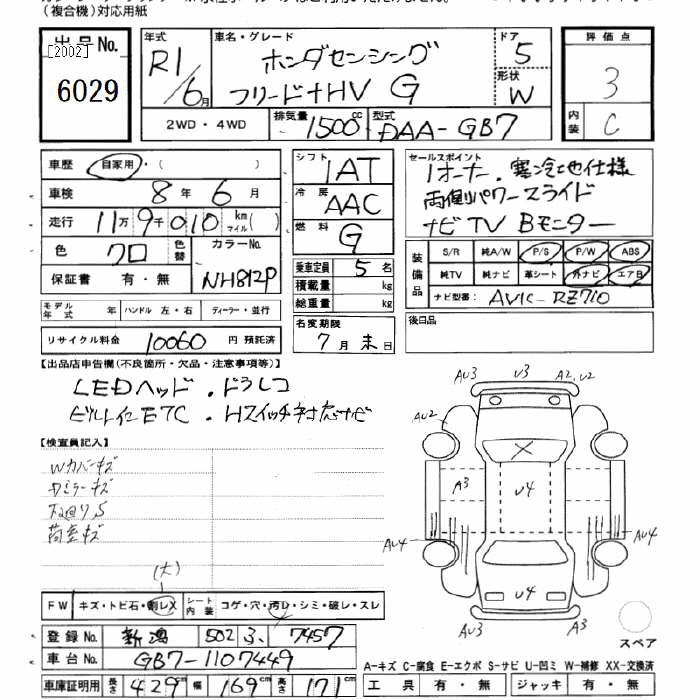 (複合機)対応用紙
出品No.
[2002]
6029
年式 R1/6月
車名・グレード ホンダセンシング
フリード+HV G
ドア 5
形状 W
2WD・4WD
排気量 1500cc
型式 DAA-GB7
評価点
3
内装 C
車歴 自家用・( )
車検 8年6月
走行 11万9千010 km マイル( )
色 クロ 色替
カラーNo. NH812P
保証書 有・無
シフト IAT
冷房 AAC
燃料 G
乗車定員 5名
積載量 kg
総重量 kg
名変期限
7月末日
セールスポイント
1オーナー. 寒冷地仕様
両側パワースライド
ナビTV Bモニター
装備品
S/R 純A/W P/S P/W ABS
純TV 純ナビ 革シート 外ナビ エアB
ナビ型番: AVIC-RZ710
後日品
モデル年式 年 ハンドル 左・右 ディーラー・並行
リサイクル料金 10060 円 預託済
【出品店申告欄(不良箇所・欠品・注意事項等)】
LEDヘッド . ドラレコ
ビルトインETC . Hスイッチ対応ナビ
【検査員記入】
Wカバーキズ
Dミラーキズ
下廻りS
荷室キズ
(大)
FW キズ・トビ石・割レX
シート内装 コゲ・穴・汚レ・シミ・破レ・スレ
AU3 U3 A2, U2
AU2
A3 U4
AU4 AU4
U4
AU3 A3
スペア
登録No. 新潟 502 ろ 7457
車台No. GB7-1107449
車庫証明用 長さ 429cm 幅 169cm 高さ 171cm
A-キズ C-腐食 E-エクボ S-サビ U-凹ミ W-補修 XX-交換済
工具 有・無 ジャッキ 有・無